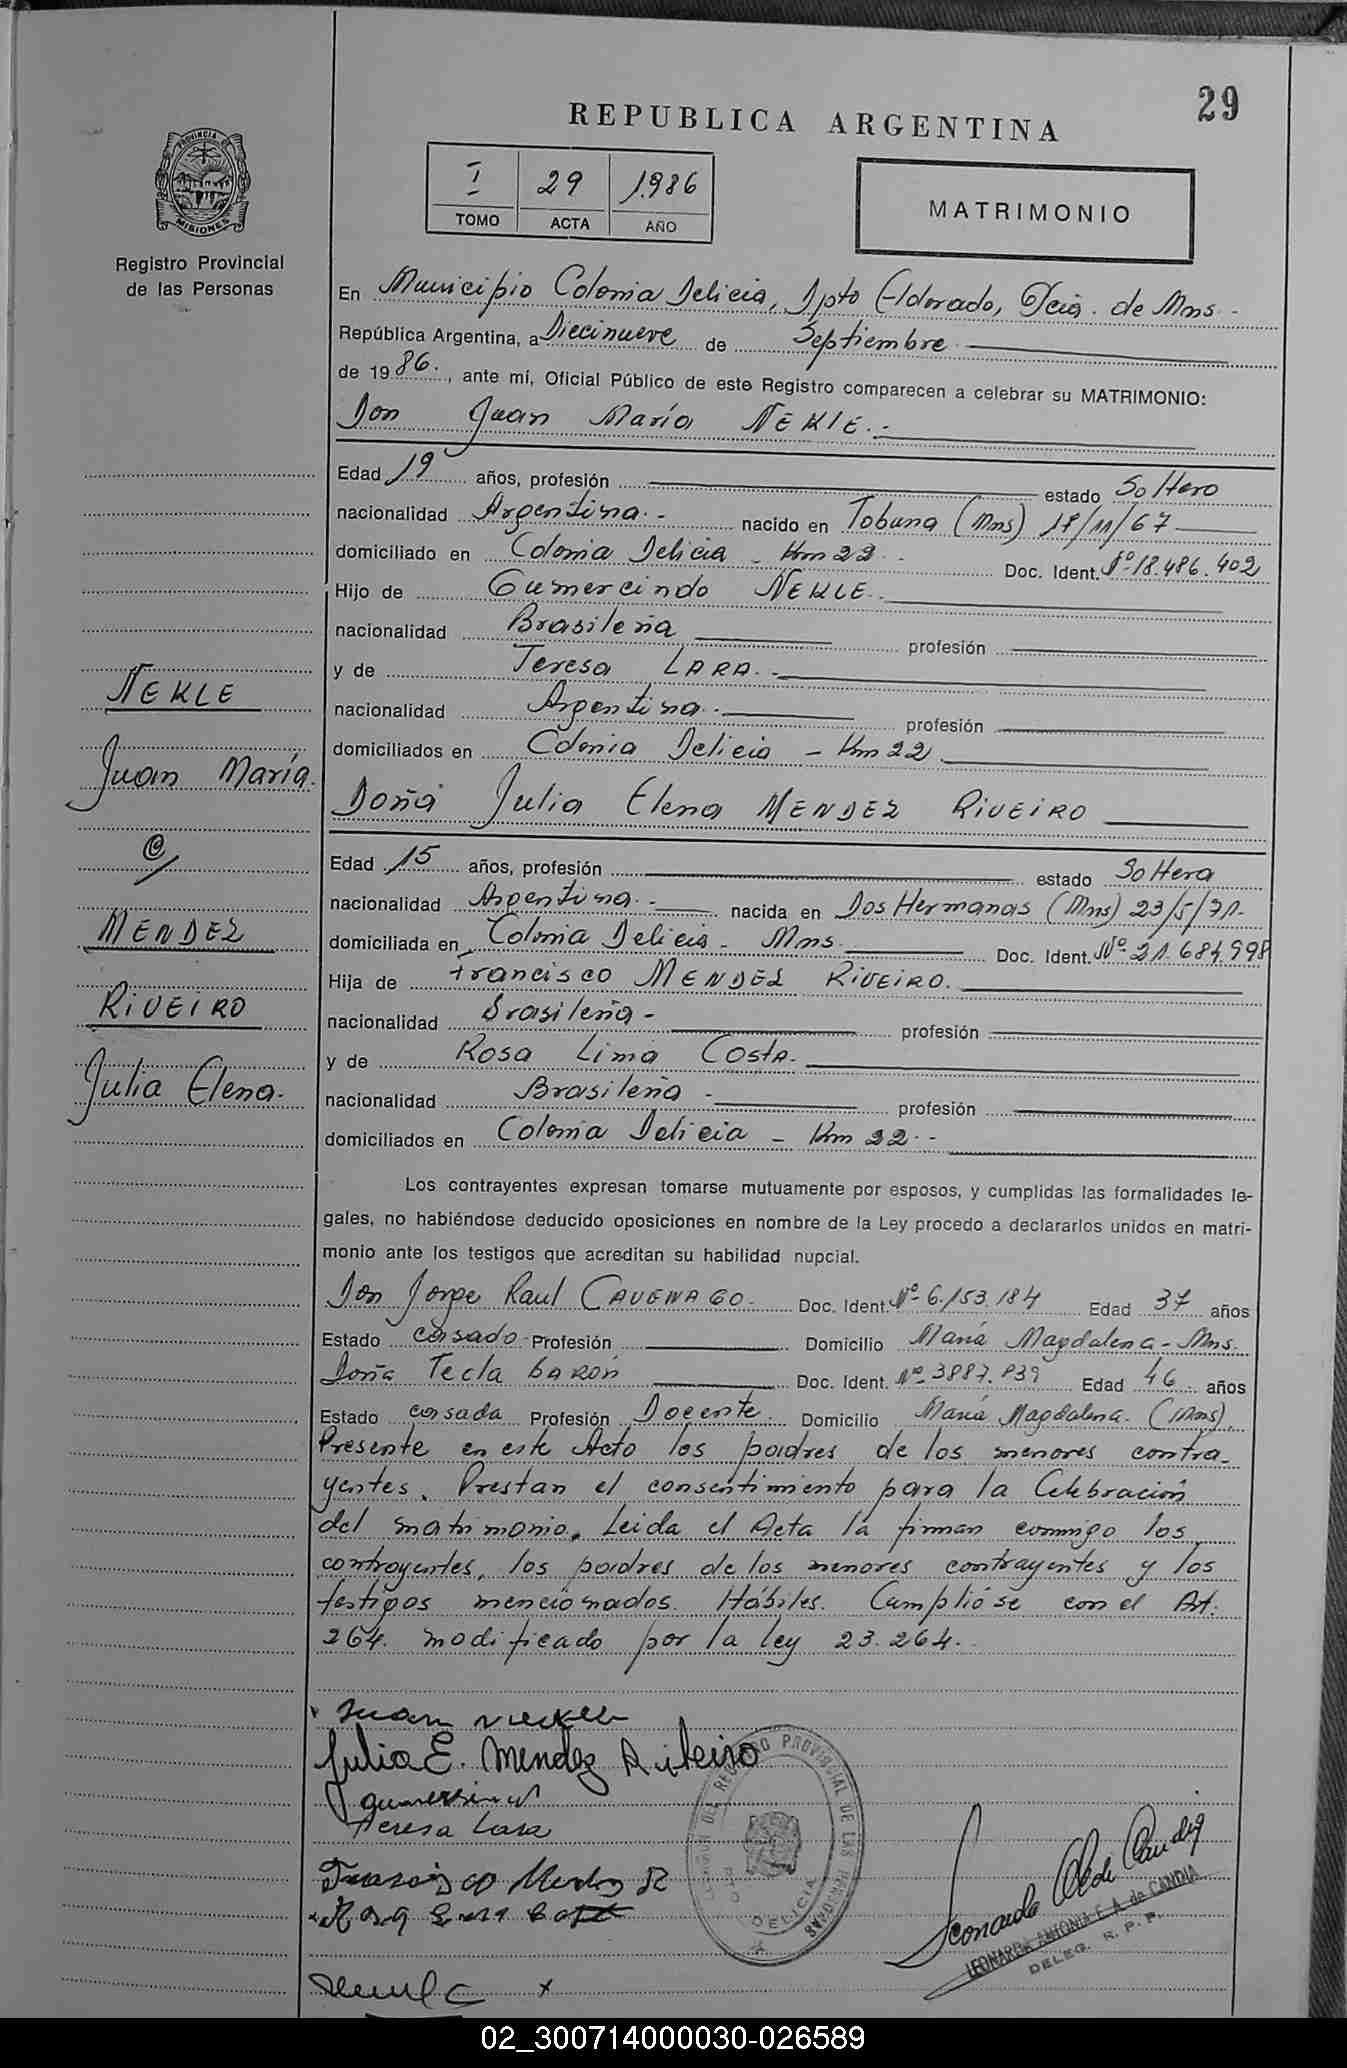 29
REPUBLICA ARGENTINA
I 29 1986
TOMO ACTA AÑO
MATRIMONIO
PROVINCIA DE
MISIONES
Registro Provincial
de las Personas
En Municipio Colonia Delicia, Dpto Eldorado, Pcia. de Mns.-
República Argentina, a Diecinueve de Septiembre
de 1986., ante mí, Oficial Público de este Registro comparecen a celebrar su MATRIMONIO:
Don Juan María NEKLE.-
Edad 19 años, profesión estado Soltero
nacionalidad Argentina.- nacido en Tobuna (Mns) 18/11/67
domiciliado en Colonia Delicia - Km 22.- Doc. Ident. Nº 18.486.402
Hijo de Gumercindo NEKLE.
nacionalidad Brasileña profesión
y de Teresa LARA.-
nacionalidad Argentina.- profesión
domiciliados en Colonia Delicia - Km 22
Doña Julia Elena MENDEZ RIVEIRO
Edad 15 años, profesión estado Soltera
nacionalidad Argentina.- nacida en Dos Hermanas (Mns) 23/5/71.
domiciliada en Colonia Delicia - Mns. Doc. Ident. Nº 21.684.998
Hija de Francisco MENDEZ RIVEIRO.
nacionalidad Brasileña - profesión
y de Rosa Lima COSTA.
nacionalidad Brasileña - profesión
domiciliados en Colonia Delicia - Km 22.-
NEKLE
Juan María.
C/
MENDEZ
RIVEIRO
Julia Elena.
Los contrayentes expresan tomarse mutuamente por esposos, y cumplidas las formalidades le-
gales, no habiéndose deducido oposiciones en nombre de la Ley procedo a declararlos unidos en matri-
monio ante los testigos que acreditan su habilidad nupcial.
Don Jorge Raul CAVENAGO. Doc. Ident. Nº 6.153.184 Edad 37 años
Estado casado Profesión Domicilio María Magdalena - Mns.
Doña Tecla BARON Doc. Ident. Nº 3887.839 Edad 46 años
Estado casada Profesión Docente Domicilio María Magdalena. (Mns).
Presente en este Acto los padres de los menores contra-
yentes. Prestan el consentimiento para la Celebración
del matrimonio. Leida el Acta la firman conmigo los
contrayentes, los padres de los menores contrayentes y los
testigos mencionados. Hábiles. Cumplióse con el Art.
264. modificado por la ley 23.264.-
Juan
Julia E. Mendez Ribeiro
Teresa Lara
REGISTRO PROVINCIAL DE LAS PERSONAS
DELICIA
LEONARDA ANTONIA C. A. de CANDIA
DELEG. R. P. P.
02_300714000030-026589